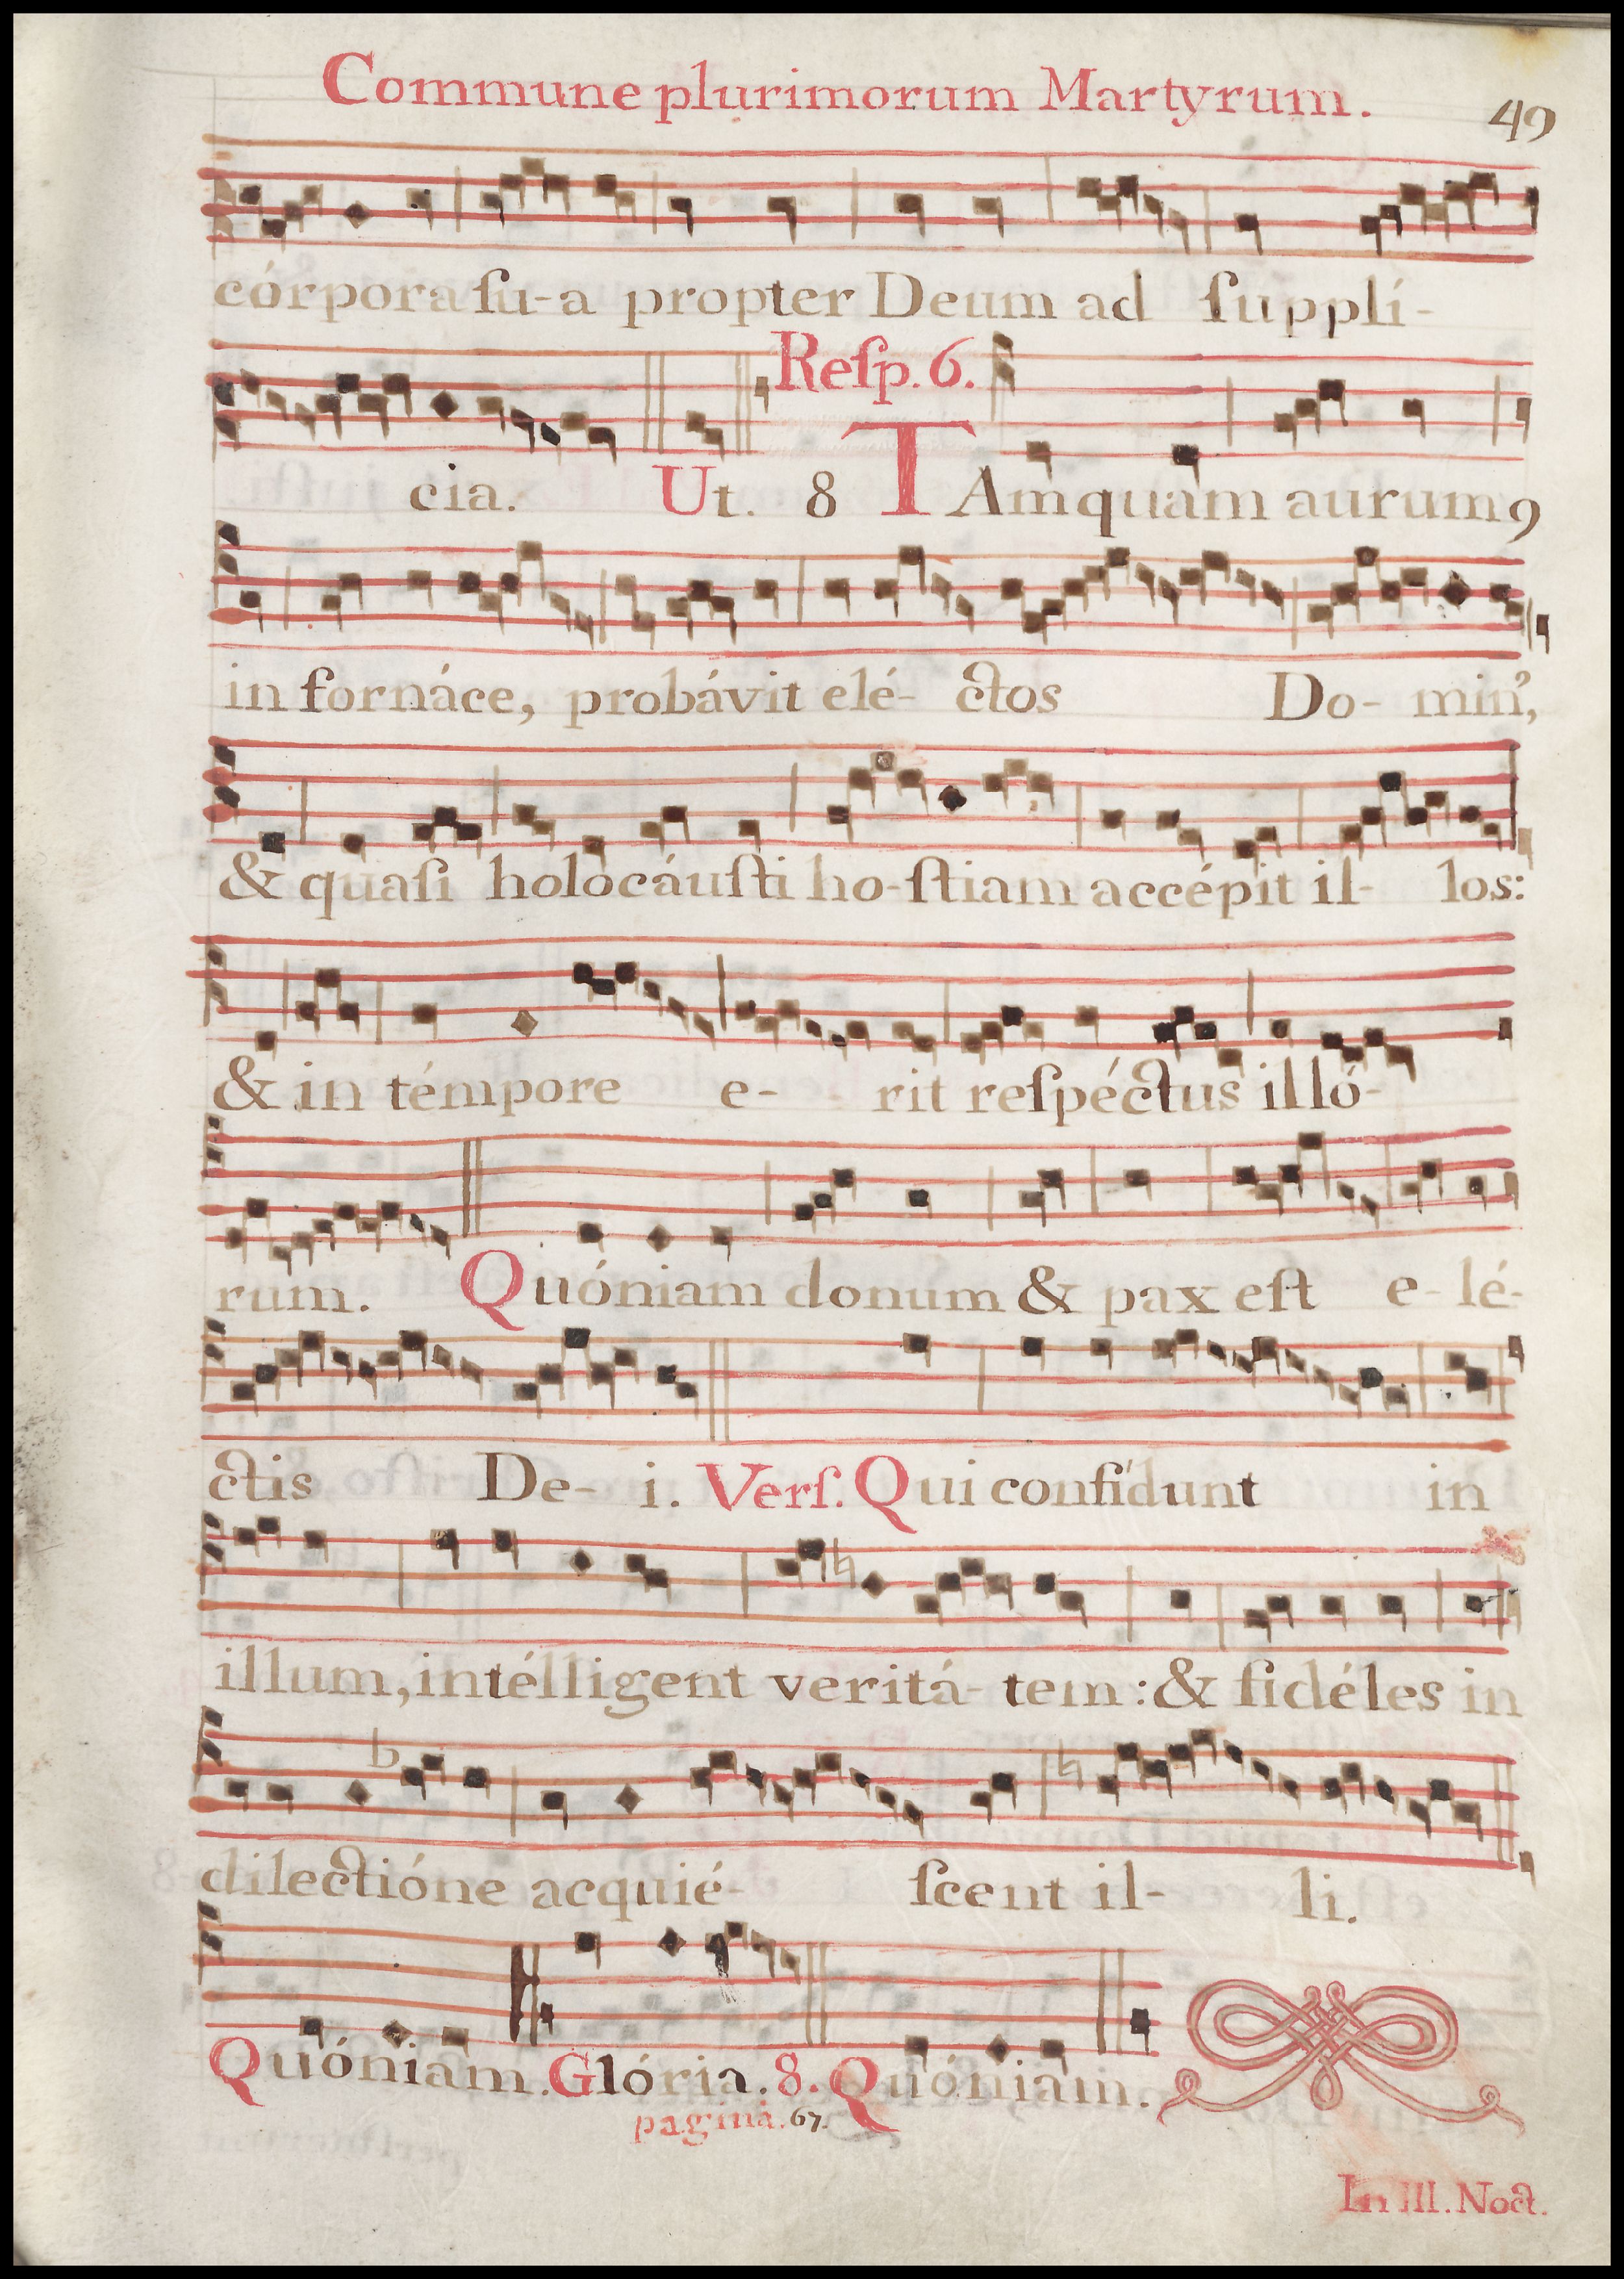 Commune plurimorum Martyrum. 49
córpora ſu-a propter Deum ad ſupplí-
Reſp. 6.
cia. Ut. 8 TAmquam aurum 9
in fornáce, probávit elé- ctos Do- min9,
& quaſi holocáuſti ho-ſtiam accépit il- los:
& in témpore e- rit reſpéctus illó-
rum. Quóniam donum & pax eſt e- lé-
ctis De- i. Verſ. Qui confídunt in
illum, intélligent veritá- tem: & fidéles in
dilectióne acquié- ſcent il- li.
Quóniam. Glória. 8. Quóniam.
pagina. 67.
In III. Noct.